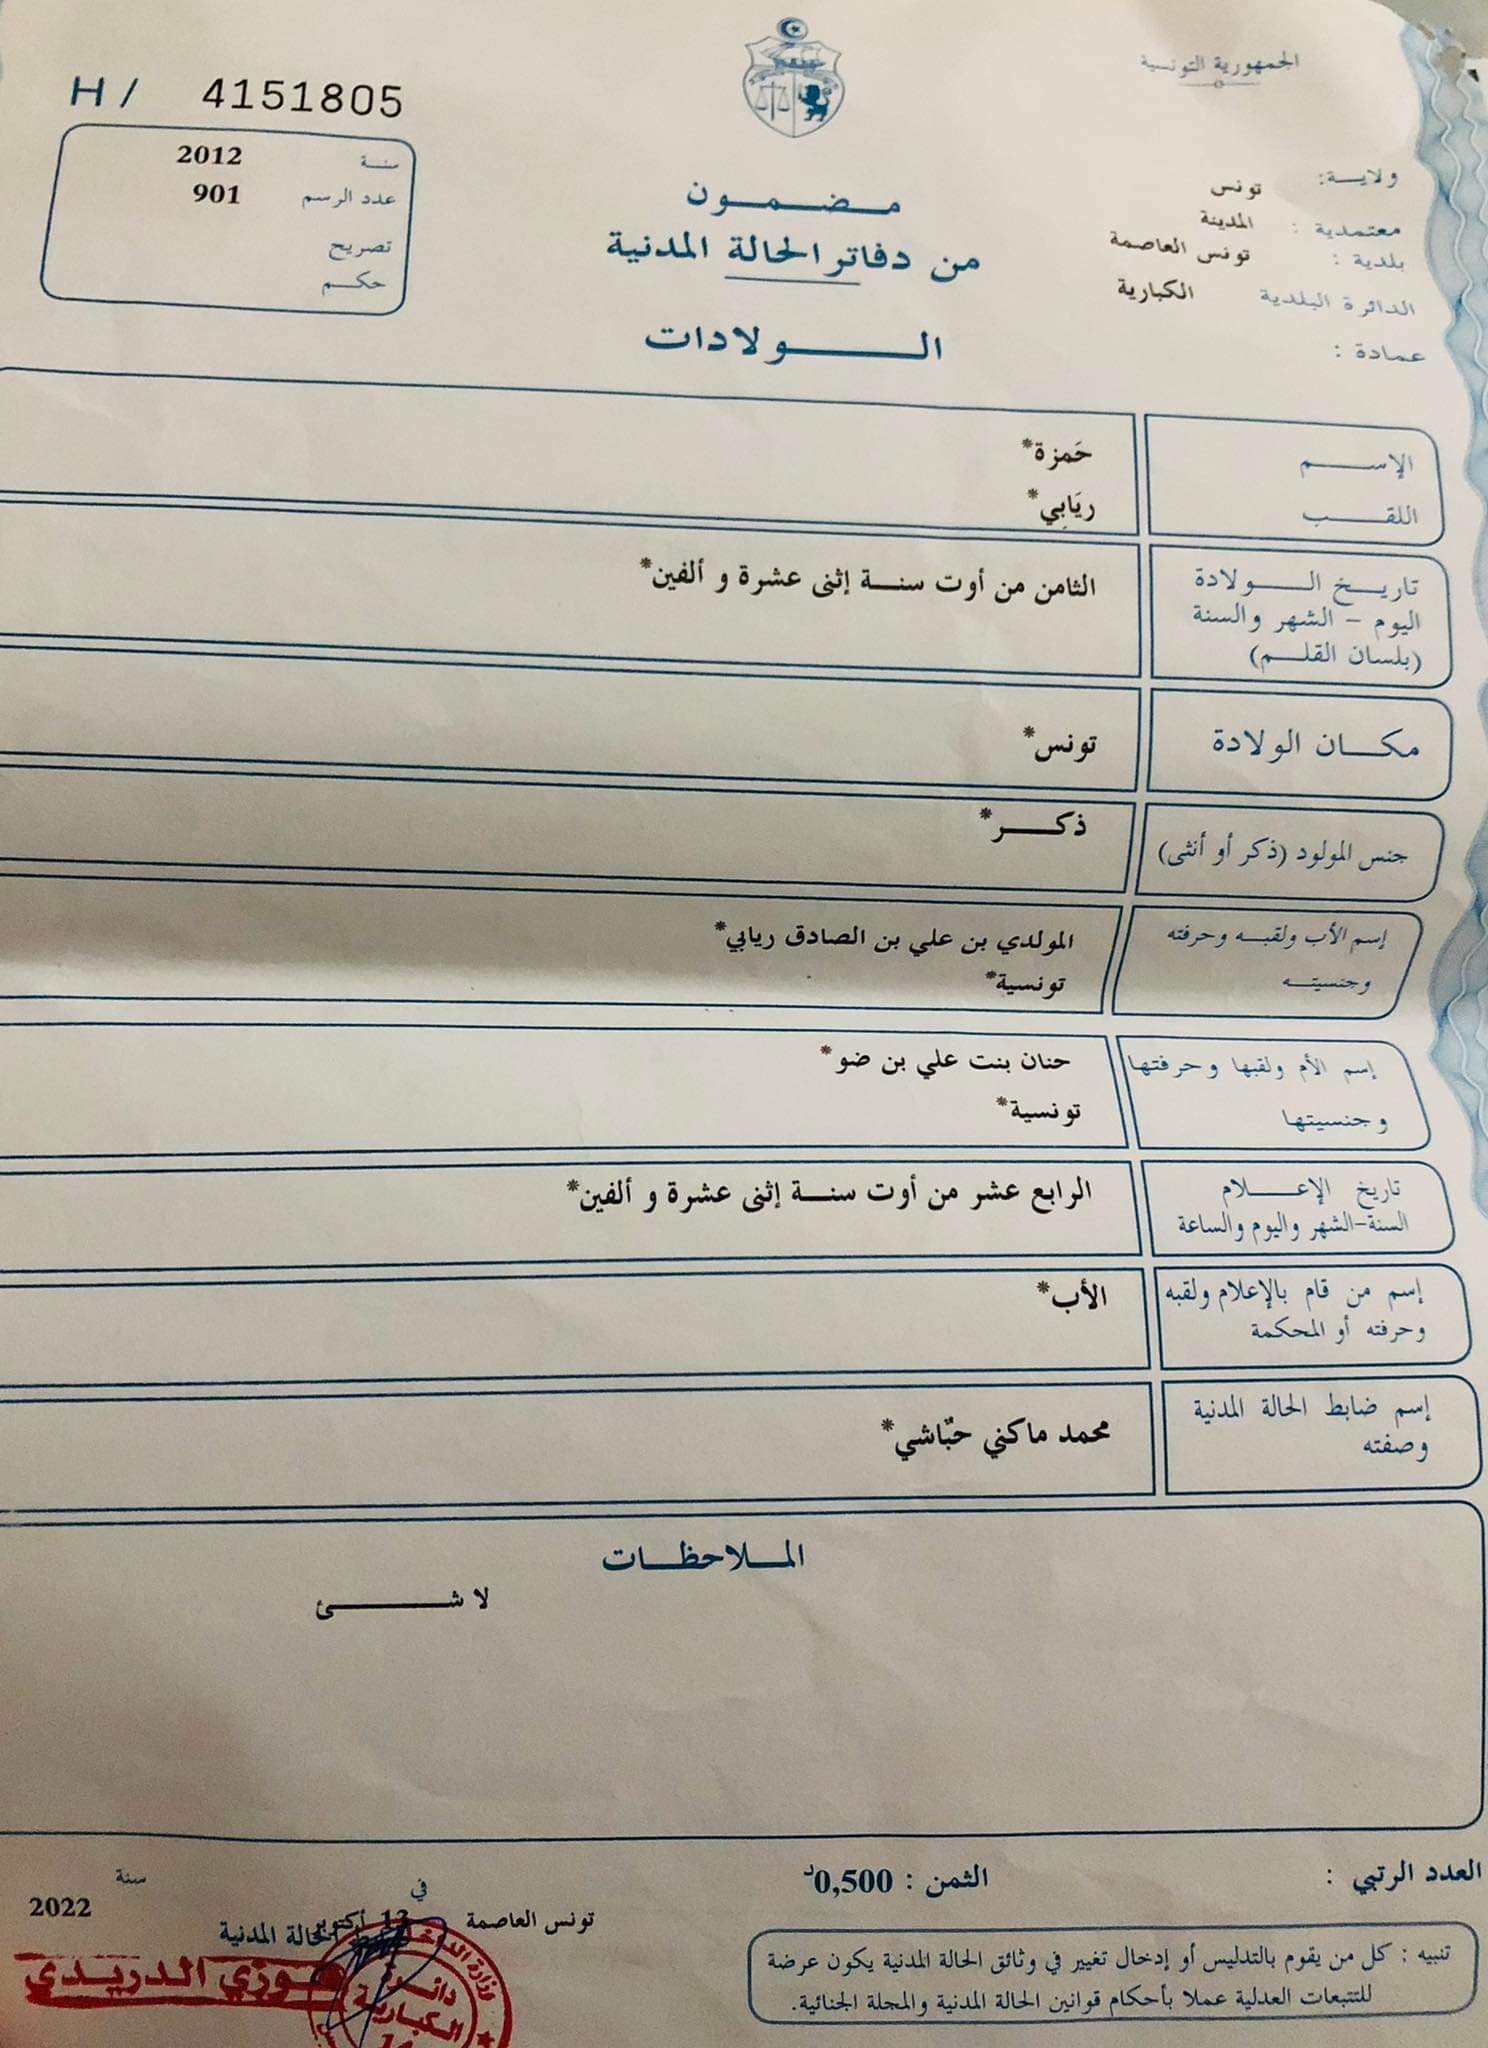 الجمهورية التونسية
H / 4151805
سنة 2012
عدد الرسم 901
تصريح
حكم
ولاية: تونس
معتمدية: المدينة
بلدية: تونس العاصمة
الدائرة البلدية الكبارية
عمادة:
مضمون
من دفاتر الحالة المدنية
الولادات
الإسم حَمزة*
اللقب ريَابِي*
تاريخ الولادة الثامن من أوت سنة إثنى عشرة و ألفين*
اليوم - الشهر والسنة
(بلسان القلم)
مكان الولادة تونس*
جنس المولود (ذكر أو أنثى) ذكر*
إسم الأب ولقبه وحرفته المولدي بن علي بن الصادق ريابي*
وجنسيته تونسية*
إسم الأم ولقبها وحرفتها حنان بنت علي بن ضو*
وجنسيتها تونسية*
تاريخ الإعلام الرابع عشر من أوت سنة إثنى عشرة و ألفين*
السنة-الشهر واليوم والساعة
إسم من قام بالإعلام ولقبه الأب*
وحرفته أو المحكمة
إسم ضابط الحالة المدنية محمد ماكني حبّاشي*
وصفته
الملاحظات
لا شئ
العدد الرتبي :
الثمن : 0,500د
تونس العاصمة في أكتوبر سنة 2022
الحالة المدنية
فوزي الدريدي
دائرة
الكبارية
تنبيه : كل من يقوم بالتدليس أو إدخال تغيير في وثائق الحالة المدنية يكون عرضة
للتتبعات العدلية عملا بأحكام قوانين الحالة المدنية والمجلة الجنائية.